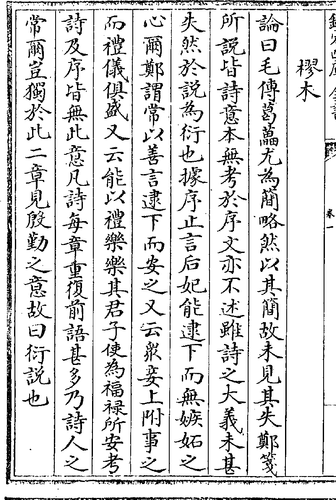 樛木
論曰毛傳葛藟尤為簡略然以其簡故未見其失鄭箋
所說皆詩意本無考於序文亦不述雖詩之大義未甚
失然於說為衍也據序止言后妃能逮下而無嫉妬之
心爾鄭謂常以善言逮下而安之又云衆妾上附事之
而禮儀俱盛又云能以禮樂樂其君子使為福禄所安考
詩及序皆無此意凡詩每章重復前語甚多乃詩人之
常爾豈獨於此二章見殷勤之意故曰衍說也